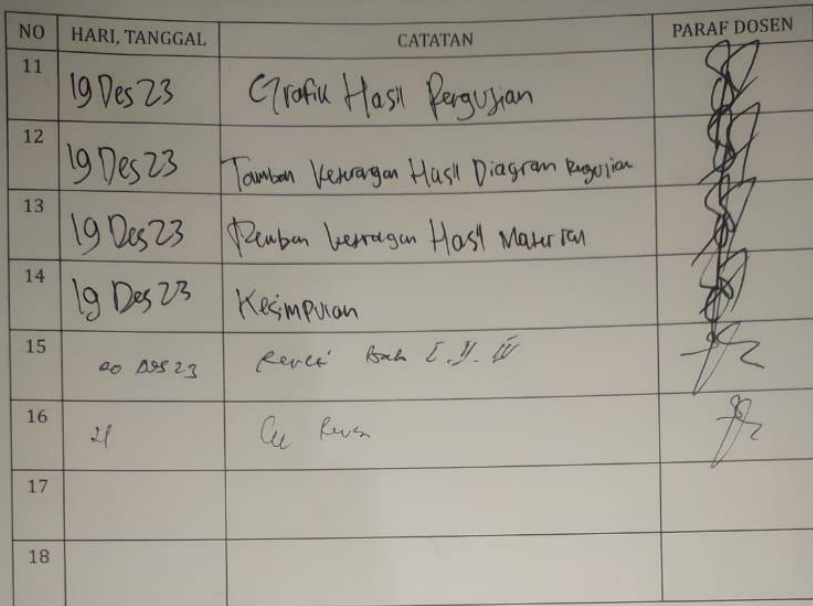 NO HARI, TANGGAL CATATAN PARAF DOSEN
11 19 Des 23 Grafik Hasil Pengujian
12 19 Des 23 Tamban Keterangan Hasil Diagram Pengujian
13 19 Des 23 Hasil Material
14 19 Des 23 Kesimpulan
15 20 Des 23 Revisi Bab
16 21
17
18